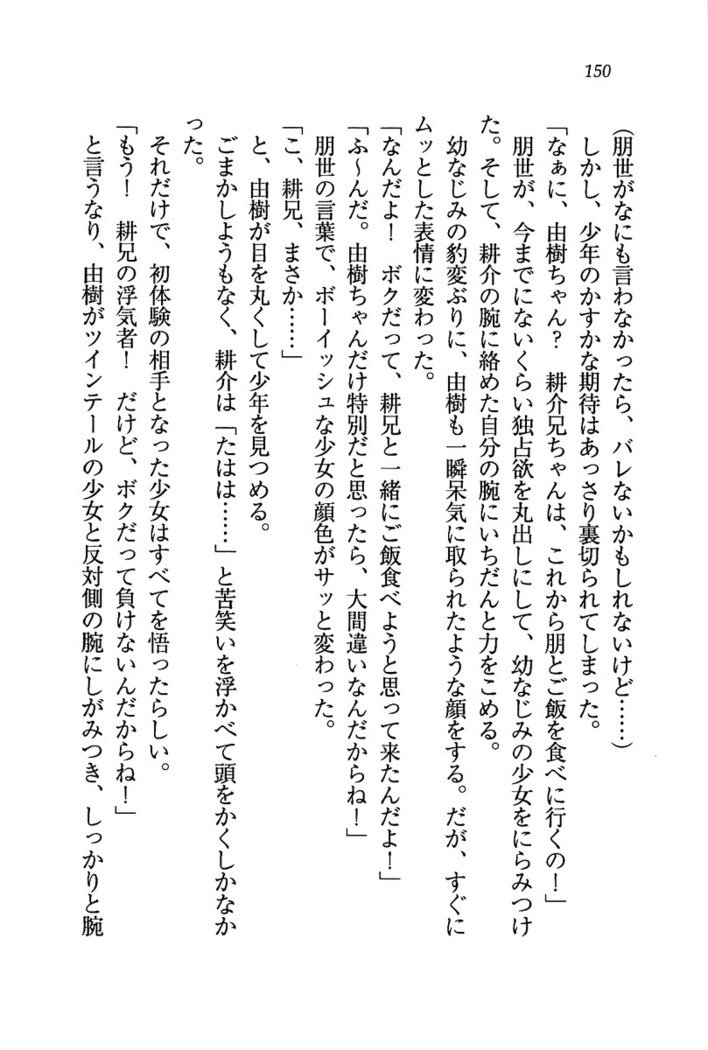 150
（朋世がなにも言わなかったら、バレないかもしれないけど……）
しかし、少年のかすかな期待はあっさり裏切られてしまった。
「なぁに、由樹ちゃん？　耕介兄ちゃんは、これから朋とご飯を食べに行くの！」
朋世が、今までにないくらい独占欲を丸出しにして、幼なじみの少女をにらみつけ
た。そして、耕介の腕に絡めた自分の腕にいちだんと力をこめる。
幼なじみの豹変ぶりに、由樹も一瞬呆気に取られたような顔をする。だが、すぐに
ムッとした表情に変わった。
「なんだよ！　ボクだって、耕兄と一緒にご飯食べようと思って来たんだよ！」
「ふ〜んだ。由樹ちゃんだけ特別だと思ったら、大間違いなんだからね！」
朋世の言葉で、ボーイッシュな少女の顔色がサッと変わった。
「こ、耕兄、まさか……」
と、由樹が目を丸くして少年を見つめる。
ごまかしようもなく、耕介は「たはは……」と苦笑いを浮かべて頭をかくしかなか
った。
それだけで、初体験の相手となった少女はすべてを悟ったらしい。
「もう！　耕兄の浮気者！　だけど、ボクだって負けないんだからね！」
と言うなり、由樹がツインテールの少女と反対側の腕にしがみつき、しっかりと腕